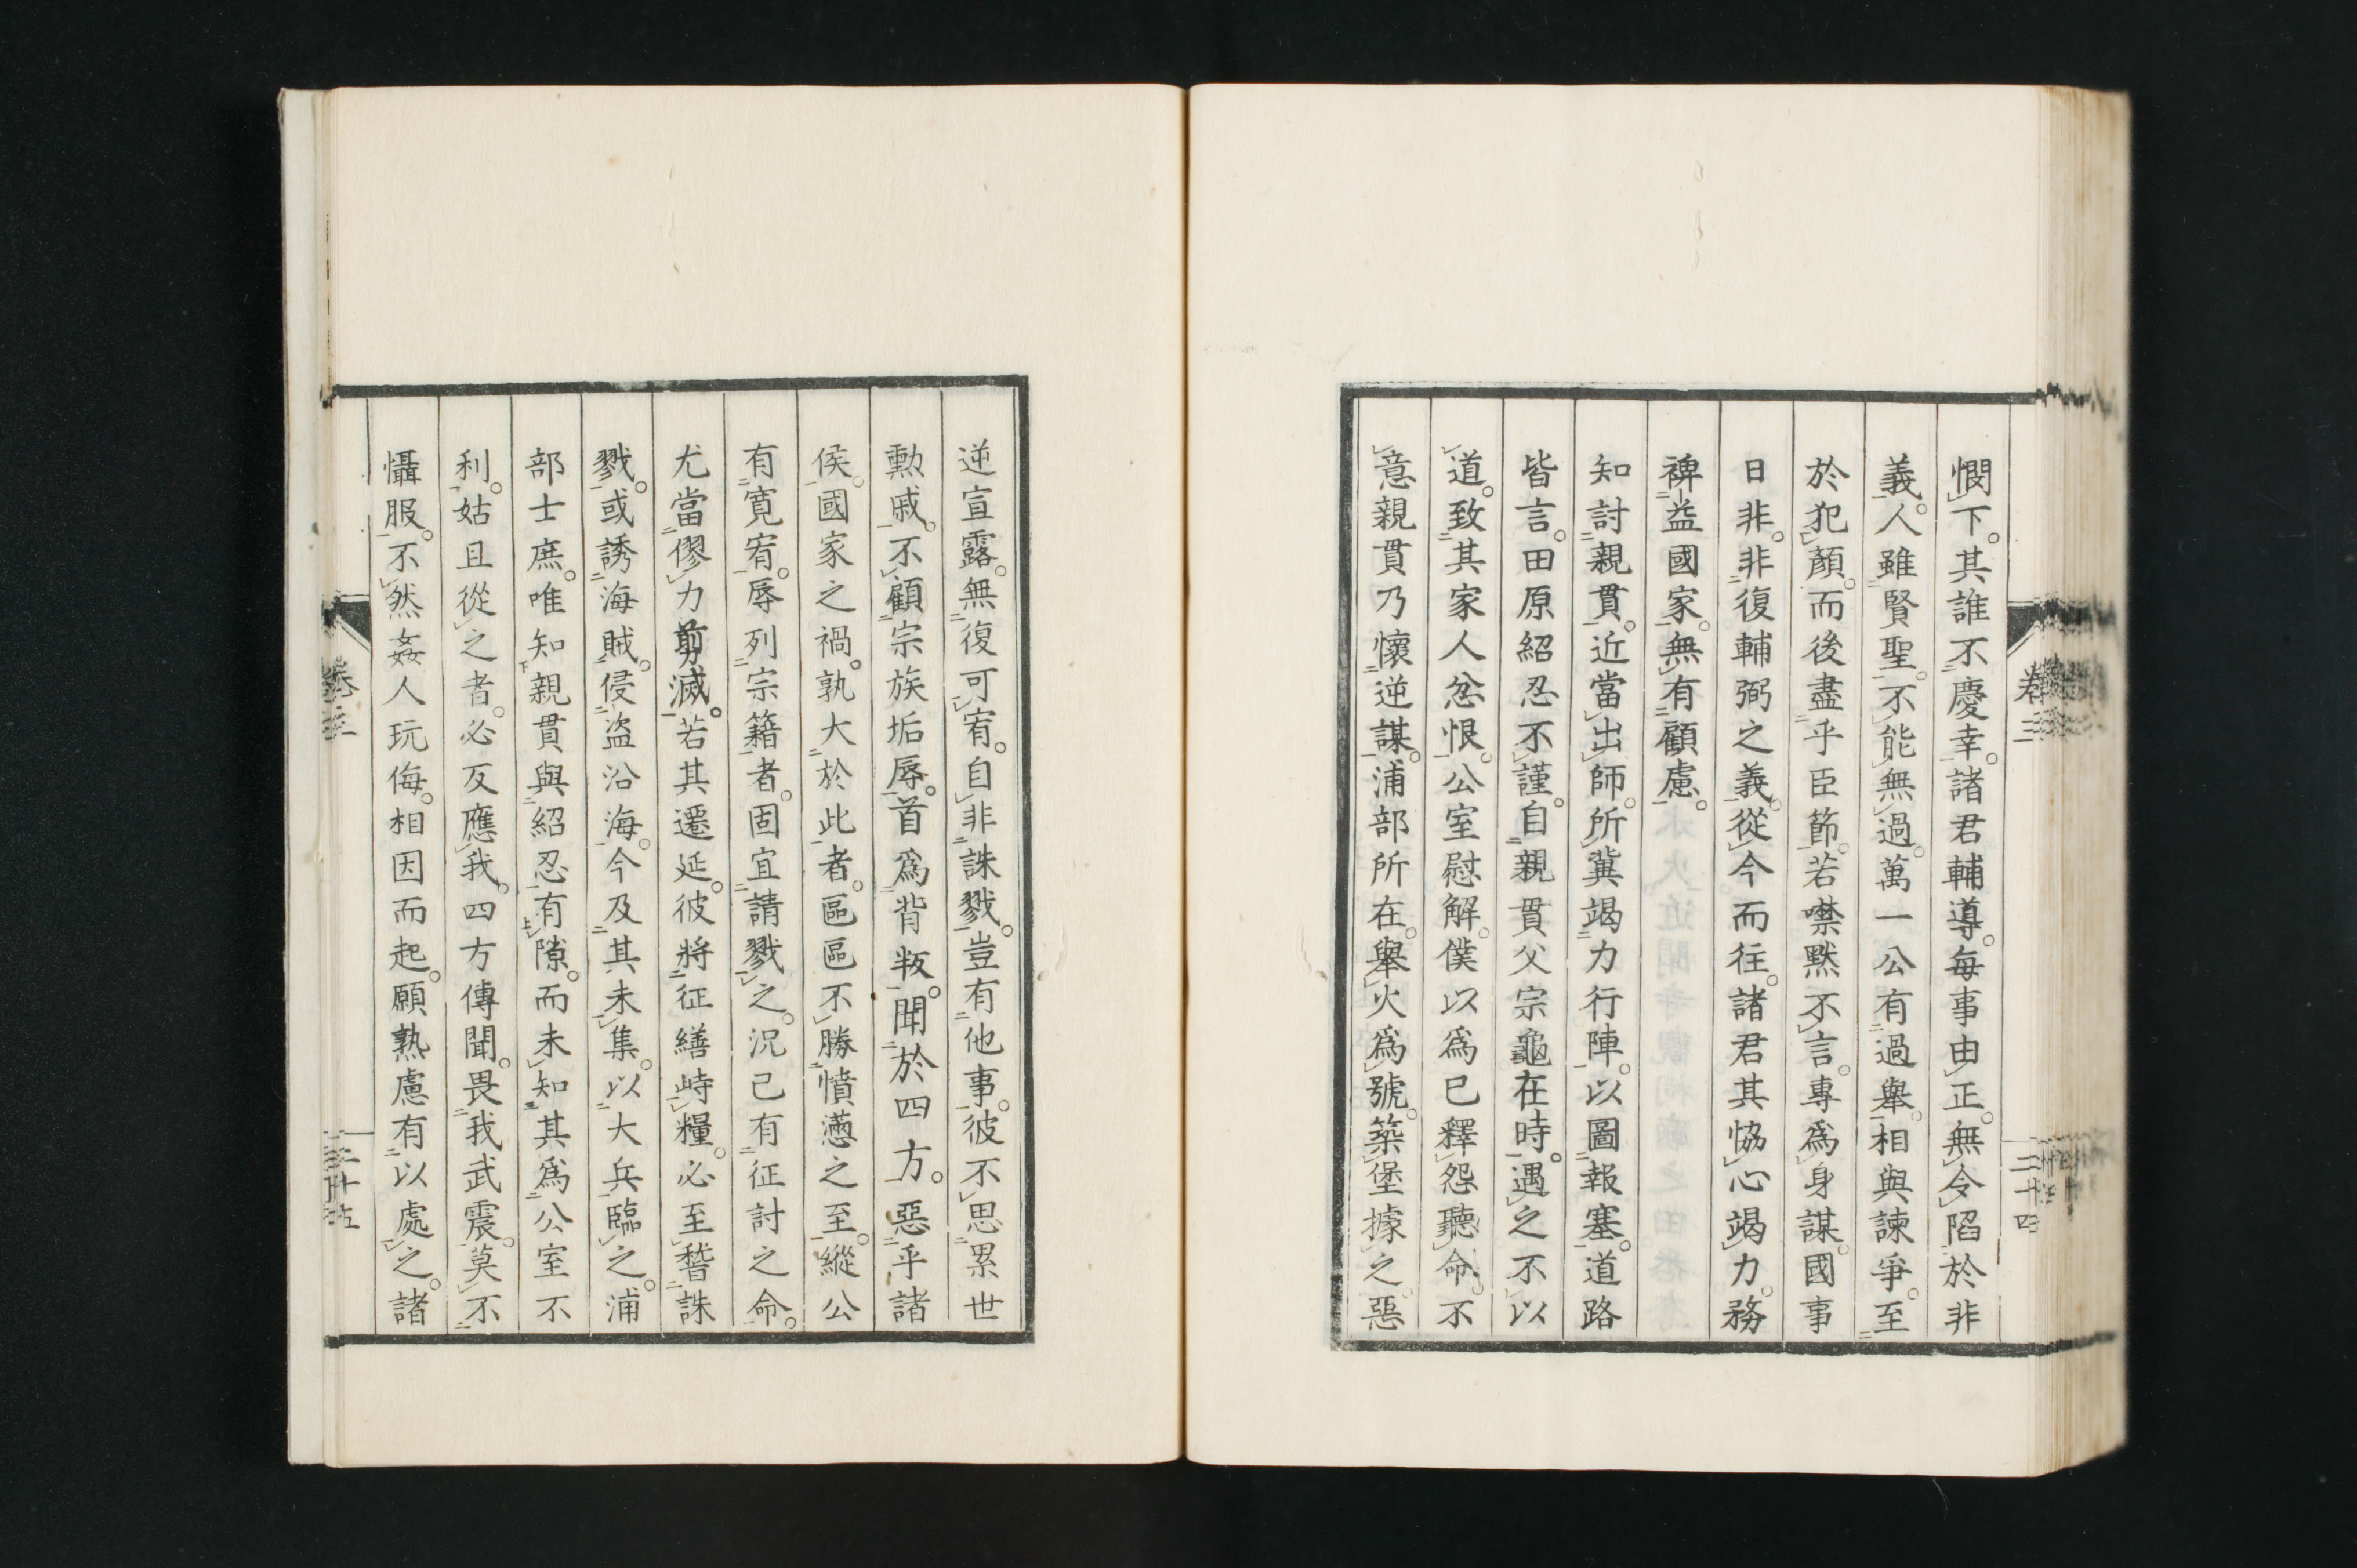 憫下。其誰不慶幸。諸君輔導。每事由正。無令陷於非
義。人雖賢聖。不能無過。萬一公有過舉。相與諫爭。至
於犯顏。而後盡乎臣節。若噤默不言。專為身謀。國事
日非。非復輔弼之義。從今而往。諸君其恊心竭力。務
裨益國家。無有顧慮。
知討親貫。近當出師。所冀竭力行陣。以圖報塞。道路
皆言。田原紹忍不謹。自親貫父宗龜在時。遇之不以
道。致其家人忿恨。公室慰解。僕以為已釋怨聽命。不
意親貫乃懷逆謀。浦部所在。舉火為號。築堡據之。惡
卷三
二十四
逆宣露。無復可宥。自非誅戮。豈有他事。彼不思累世
勳戚。不顧宗族垢辱。首為背叛。聞於四方。惡乎諸
侯。國家之禍。孰大於此者。區區不勝憤懣之至。縱公
有寬宥。辱列宗籍者。固宜請戮之。況已有征討之命。
尤當僇力剪滅。若其遷延。彼將征繕峙糧。必至稽誅
戮。或誘海賊。侵盜沿海。今及其未集。以大兵臨之。浦
部士庶。唯知親貫與紹忍有隙。而未知其為公室不
利。姑且從之者。必反應我。四方傳聞。畏我武震。莫不
懾服。不然姦人玩侮。相因而起。願熟慮有以處之。諸
卷三
二十五